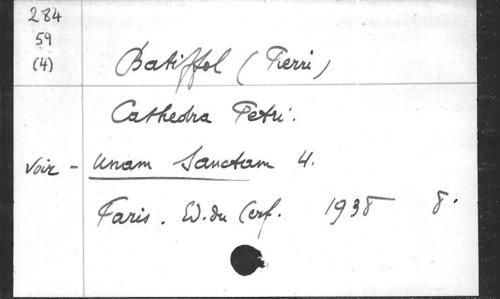 284
59
(4)
Batiffol (Pierre)
Cathedra Petri.
Voir - Unam Sanctam 4.
Paris. Ed. du Cerf. 1938 8.